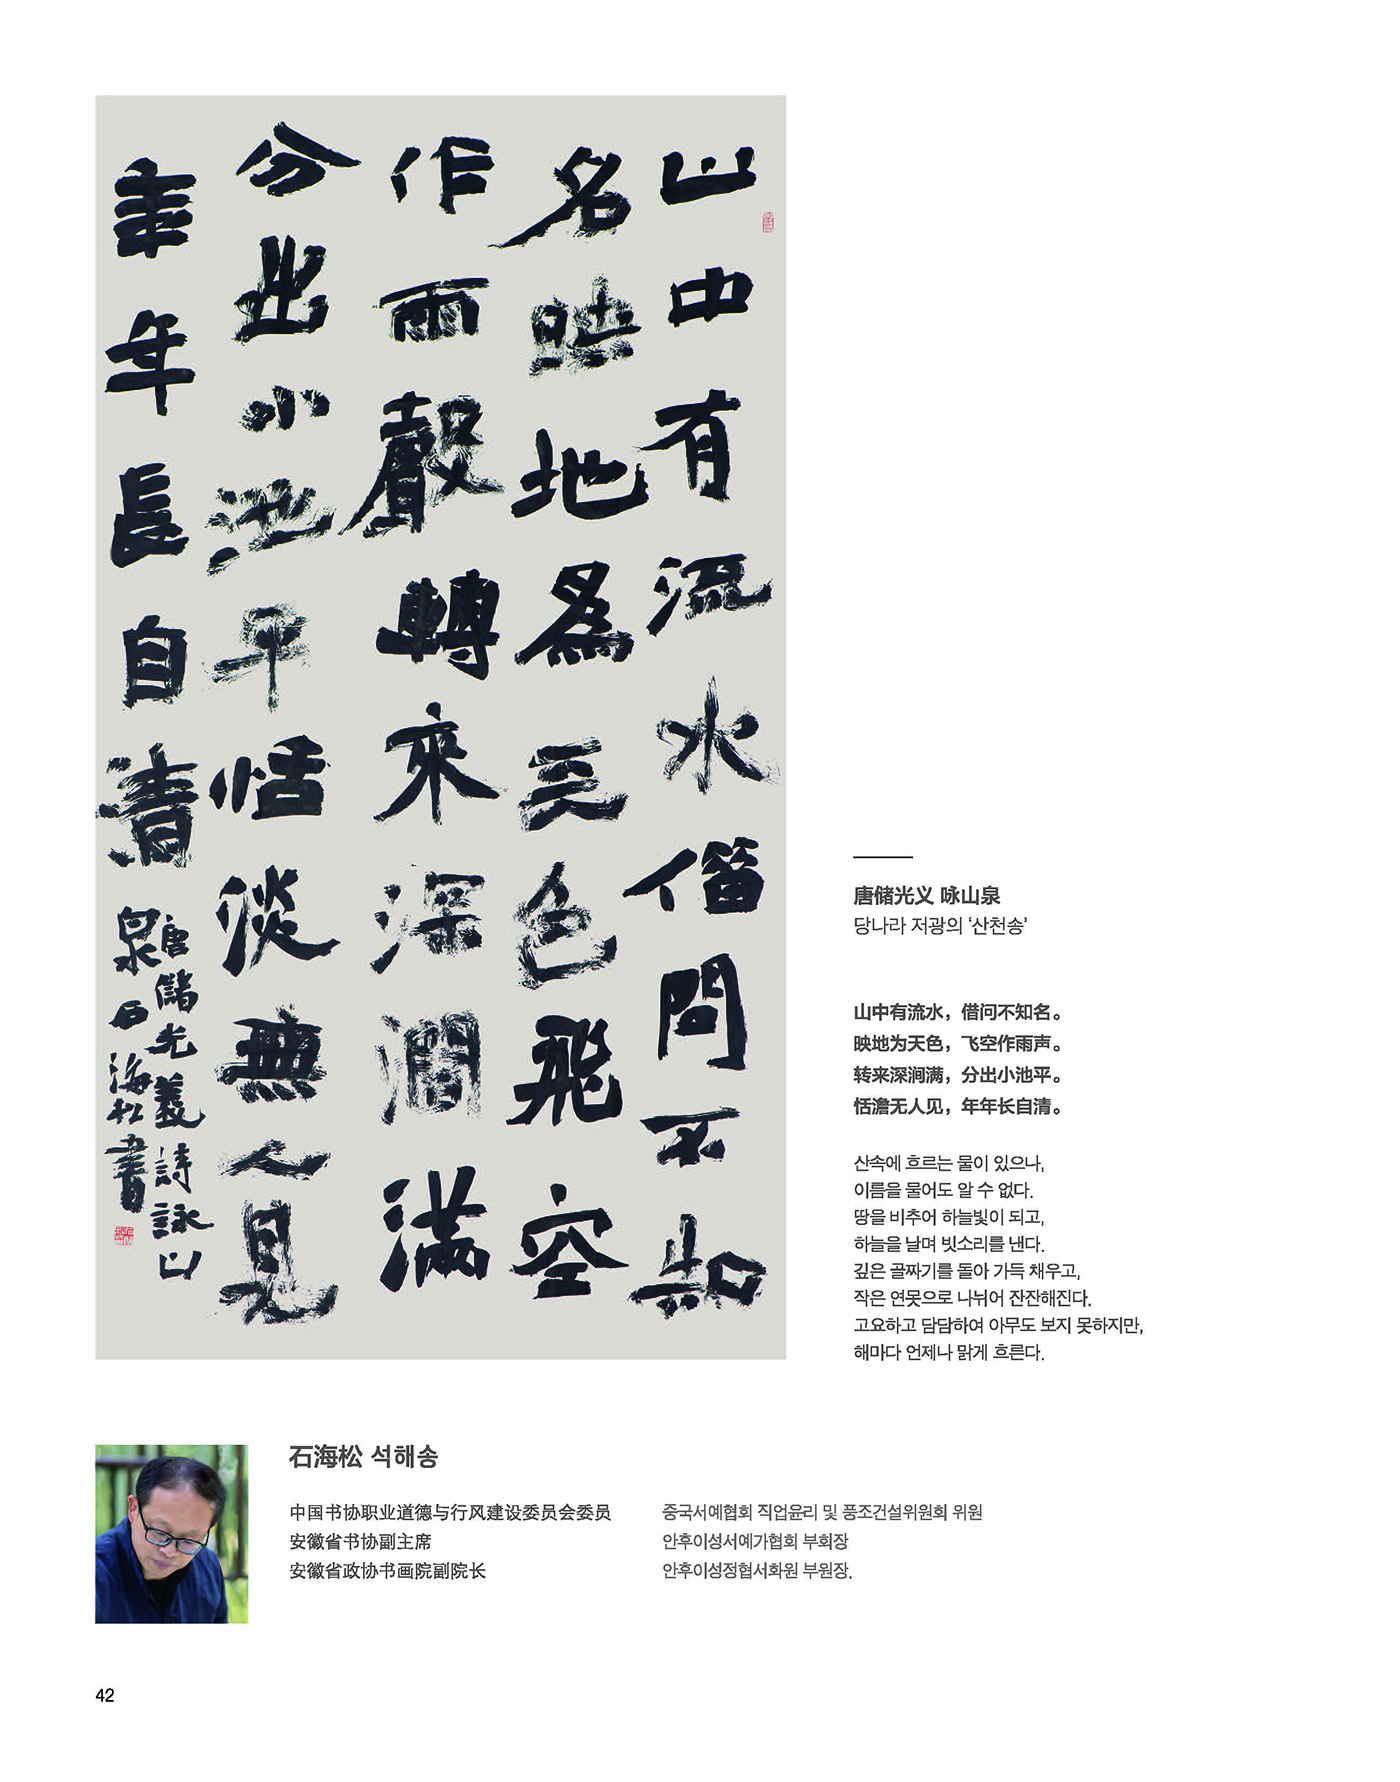 山中有流水借問不知
名映地為天色飛空
作雨聲轉來深澗滿
分出小池平恬淡無人見
年年長自清
唐儲光羲詩詠山
泉石海松書
唐储光义 咏山泉
당나라 저광의 ‘산천송’
山中有流水，借问不知名。
映地为天色，飞空作雨声。
转来深涧满，分出小池平。
恬澹无人见，年年长自清。
산속에 흐르는 물이 있으나,
이름을 물어도 알 수 없다.
땅을 비추어 하늘빛이 되고,
하늘을 날며 빗소리를 낸다.
깊은 골짜기를 돌아 가득 채우고,
작은 연못으로 나뉘어 잔잔해진다.
고요하고 담담하여 아무도 보지 못하지만,
해마다 언제나 맑게 흐른다.
石海松 석해송
中国书协职业道德与行风建设委员会委员
安徽省书协副主席
安徽省政协书画院副院长
중국서예협회 직업윤리 및 풍조건설위원회 위원
안후이성서예가협회 부회장
안후이성정협서화원 부원장.
42